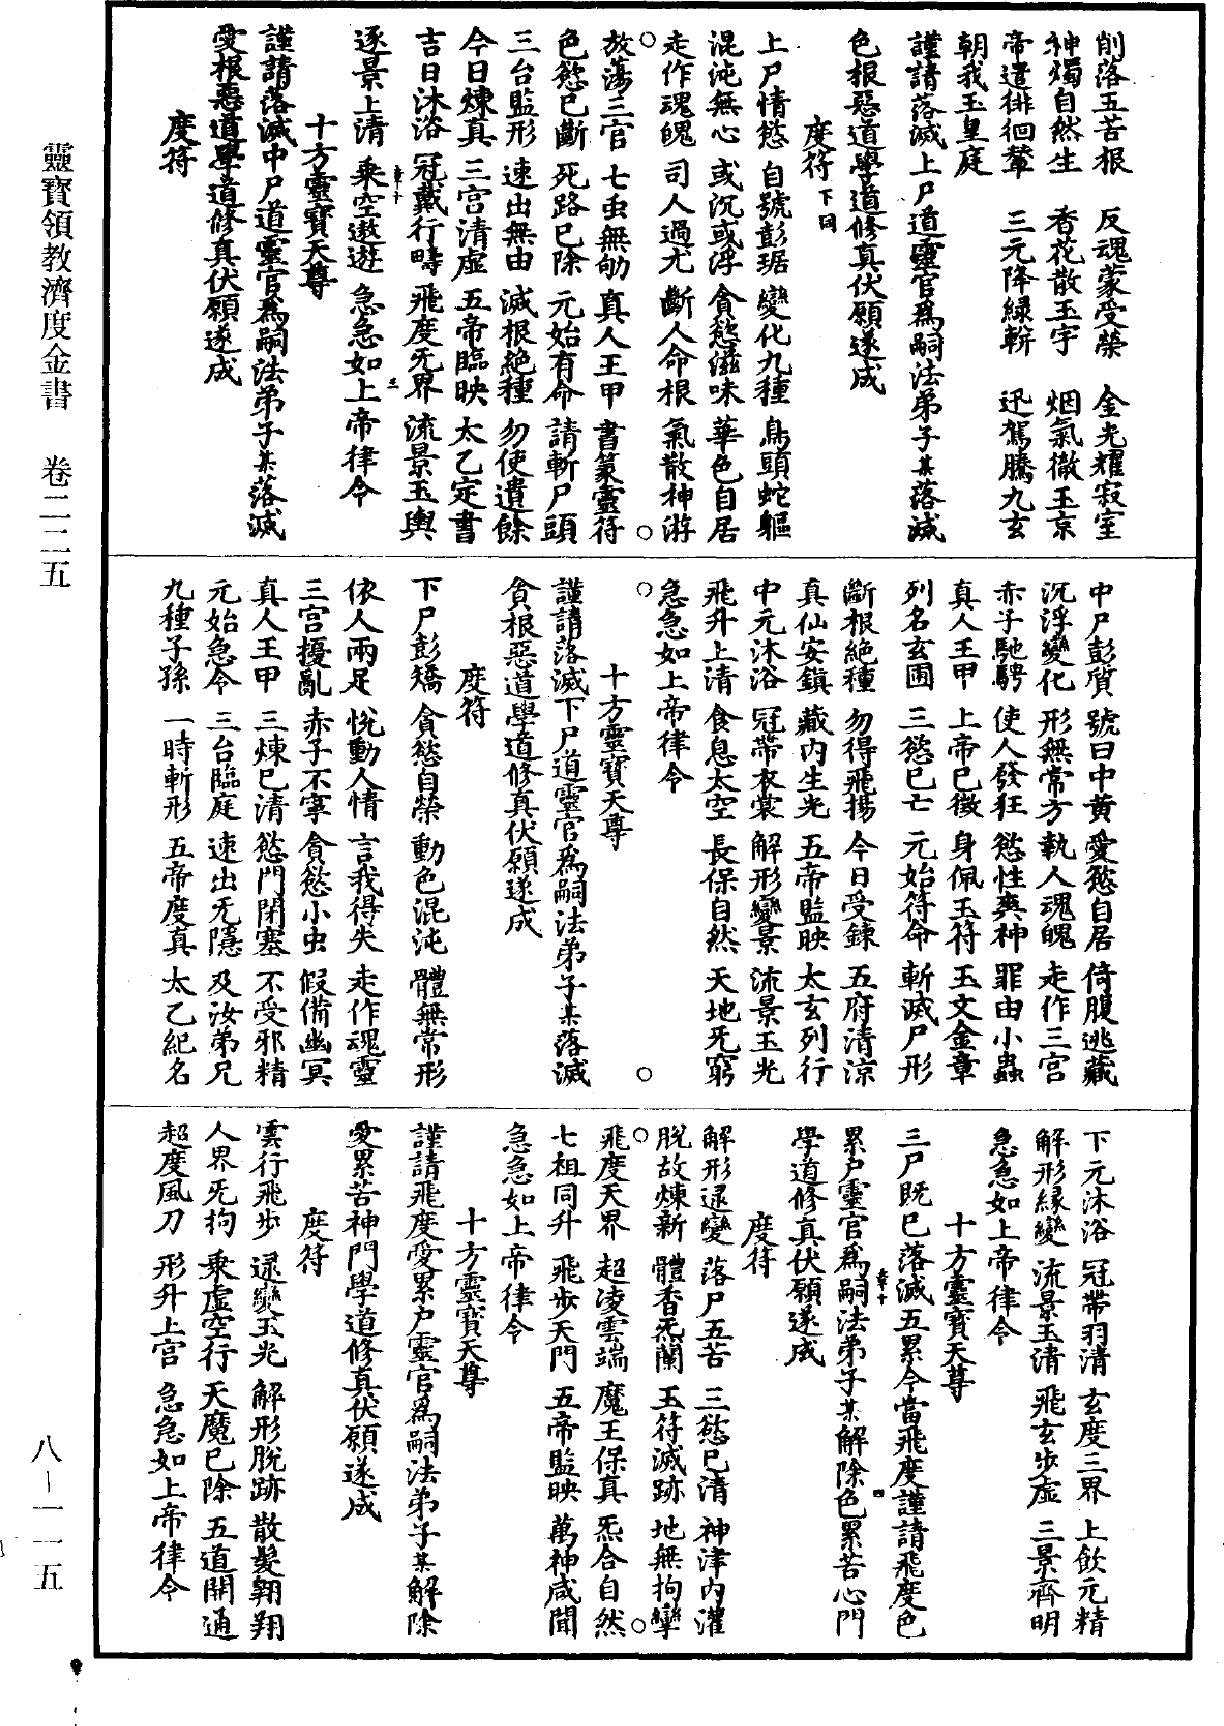 削落五苦根　反魂蒙受榮　金光耀寂室
神燭自然生　香花散玉宇　烟氣徹玉京
帝遣徘徊輦　三元降綠軿　迅駕騰九玄
朝我玉皇庭
謹請落滅上尸道靈官爲嗣法弟子某落滅
色根惡道學道修真伏願遂成
度符下同
上尸情慾　自號彭琚　變化九種　鳥頭蛇軀
混沌無心　或沉或浮　貪慾滋味　華色自居
走作魂魄　司人過尤　斷人命根　氣散神游
放蕩三宮　七虫無劬　真人王甲　書篆靈符
色慾已斷　死路已除　元始有命　請斬尸頭
三台監形　速出無由　滅根絕種　勿使遺餘
今日煉真　三宮清虛　五帝臨映　太乙定書
吉日沐浴　冠戴行疇　飛度旡界　流景玉輿
逐景上清　乘空遨遊　急急如上帝律令
十方靈寶天尊
謹請落滅中尸道靈官爲嗣法弟子某落滅
愛根惡道學道修真伏願遂成
度符
中尸彭質　號曰中黃　愛慾自居　倚腹逃藏
沉浮變化　形無常方　執人魂魄　走作三宮
赤子馳騁　使人發狂　慾性爽神　罪由小蟲
真人王甲　上帝已徵　身佩玉符　玉文金章
列名玄圃　三慾已亡　元始符命　斬滅尸形
斷根絕種　勿得飛揚　今日受鍊　五府清涼
真仙安鎮　藏內生光　五帝監映　太玄列行
中元沐浴　冠帶衣裳　解形變景　流景玉光
飛升上清　食息太空　長保自然　天地旡窮
急急如上帝律令
十方靈寶天尊
謹請落滅下尸道靈官爲嗣法弟子某落滅
貪根惡道學道修真伏願遂成
度符
下尸彭矯　貪慾自榮　動色混沌　體無常形
依人兩足　悅動人情　言我得失　走作魂靈
三宮擾亂　赤子不寧　貪慾小虫　假備幽冥
真人王甲　三煉已清　慾門閉塞　不受邪精
元始急令　三台臨庭　速出旡隱　及汝弟兄
九種子孫　一時斬形　五帝度真　太乙紀名
下元沐浴　冠帶羽清　玄度三界　上飲元精
解形緣變　流景玉清　飛玄步虛　三景齊明
急急如上帝律令
十方靈寶天尊
三尸既已落滅五累今當飛度謹請飛度色
累户靈官爲嗣法弟子某解除色累苦心門
學道修真伏願遂成
度符
解形逯變　落尸五苦　三慾已清　神津內灌
脫故煉新　體香炁蘭　玉符滅跡　地無拘攣
飛度天界　超凌雲端　魔王保真　炁合自然
七祖同升　飛步天門　五帝監映　萬神咸聞
急急如上帝律令
十方靈寶天尊
謹請飛度愛累户靈官爲嗣法弟子某解除
愛累苦神門學道修真伏願遂成
度符
雲行飛步　逯變玉光　解形脫跡　散髮翱翔
人界旡拘　乘虛空行　天魔已除　五道開通
超度風刀　形升上宮　急急如上帝律令
靈寶領教濟度金書　卷二二五
八－一一五